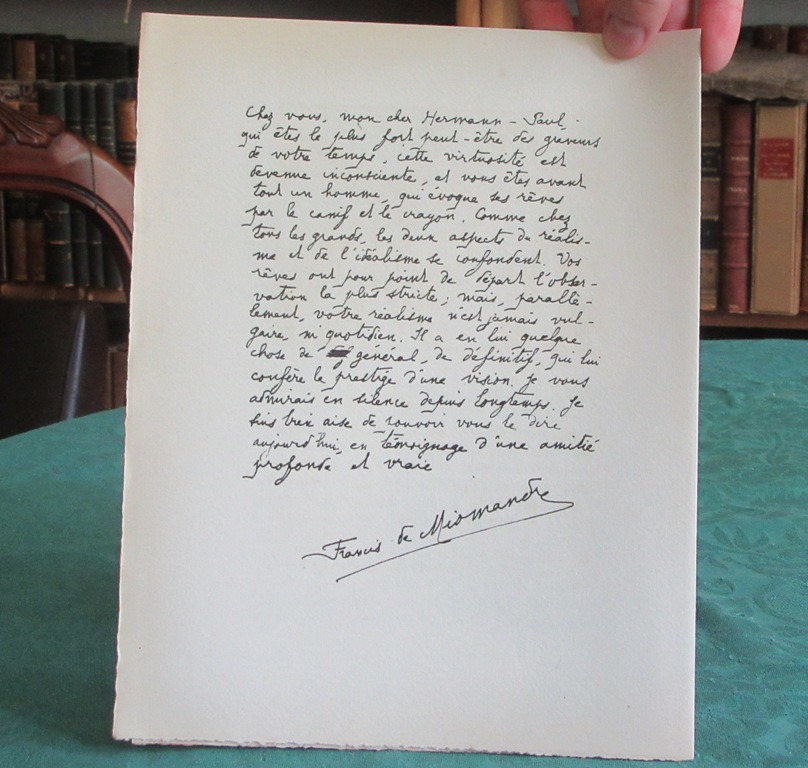 Chez vous, mon cher Hermann-Paul,
qui êtes le plus fort peut-être des graveurs
de votre temps, cette virtuosité est
devenue inconsciente, et vous êtes avant
tout un homme, qui évoque ses rêves
par le canif et le crayon. Comme chez
tous les grands, les deux aspects du réalis-
me et de l'idéalisme se confondent. Vos
rêves ont pour point de départ l'obser-
vation la plus stricte ; mais, parallè-
lement, votre réalisme n'est jamais vul-
gaire, ni quotidien. Il a en lui quelque
chose de général, de définitif, qui lui
confère le prestige d'une vision. Je vous
admirais en silence depuis longtemps. Je
suis bien aise de pouvoir vous le dire
aujourd'hui, en témoignage d'une amitié
profonde et vraie
Francis de Miomandre